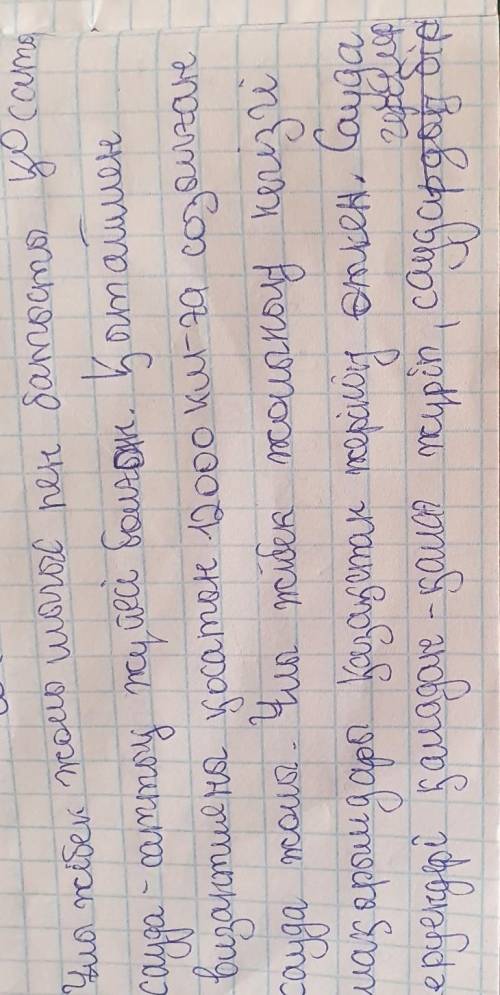 Ұлы жібек жолы шығыс пен батысты қосаты
сауда-саттық жүйесі болған. Қытаймен
византияны қосатын 12000 км-ға созылған
сауда жолы. Ұлы жібек жолының негізгі
мақ арымдары қазақстан жерінің өткен. Сауда
керуендері қаладан-қалаға жүріп, саудагердің бір